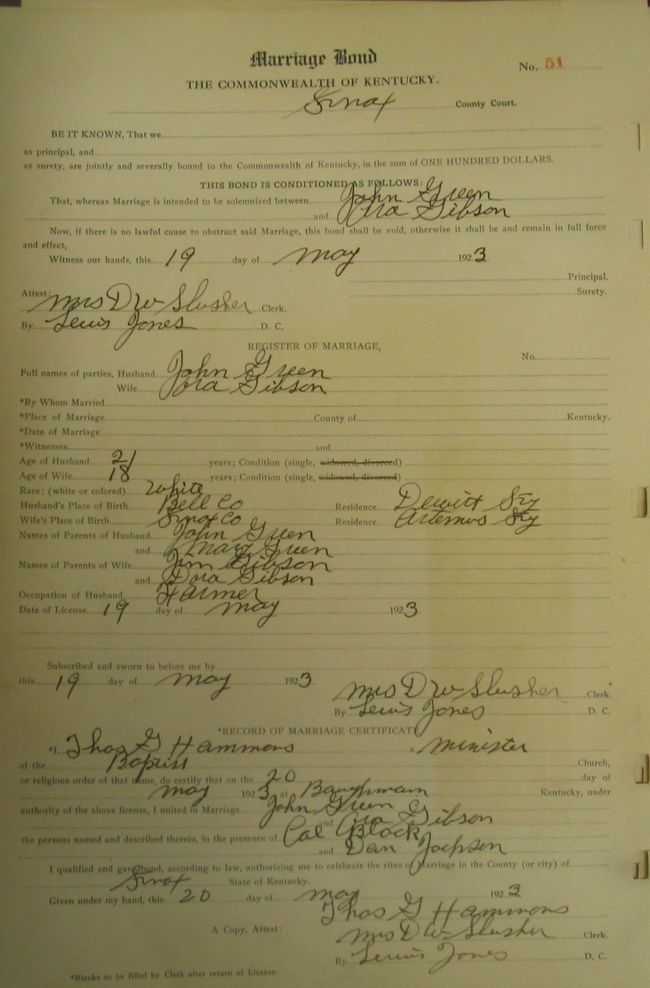 Marriage Bond
No. 51
THE COMMONWEALTH OF KENTUCKY.
Knox County Court.
BE IT KNOWN, That we
as principal, and
as surety, are jointly and severally bound to the Commonwealth of Kentucky, in the sum of ONE HUNDRED DOLLARS.
THIS BOND IS CONDITIONED AS FOLLOWS:
That, whereas Marriage is intended to be solemnized between John Green
and Ora Gibson
Now, if there is no lawful cause to obstruct said Marriage, this bond shall be void, otherwise it shall be and remain in full force
and effect,
Witness our hands, this 19 day of May 1923
Principal.
Surety.
Attest: Mrs D W Slusher Clerk.
By Lewis Jones D. C.
REGISTER OF MARRIAGE,
No.
Full names of parties, Husband John Green
Wife Ora Gibson
*By Whom Married
*Place of Marriage County of Kentucky.
*Date of Marriage
*Witnesses and
Age of Husband 21 years; Condition (single, widowed, divorced)
Age of Wife 18 years; Condition (single, widowed, divorced)
Race: (white or colored) White
Husband's Place of Birth Bell Co Residence Dewitt Ky
Wife's Place of Birth Knox Co Residence Artemus Ky
Names of Parents of Husband John Green
and Mary Green
Names of Parents of Wife Jim Gibson
and Dora Gibson
Occupation of Husband Farmer
Date of License 19 day of May 1923
Subscribed and sworn to before me by
this 19 day of May 1923
Mrs D W Slusher Clerk.
By Lewis Jones D. C.
*RECORD OF MARRIAGE CERTIFICATE
*I, Thos G Hammons a Minister
of the Baptist Church,
or religious order of that name, do certify that on the 20 day of
May 1923 at Baughman Kentucky, under
authority of the above license, I united in Marriage John Green
and Ora Gibson
the persons named and described therein, in the presence of Cal Block
and Dan Jackson
I qualified and gave bond, according to law, authorizing me to celebrate the rites of Marriage in the County (or city) of
Knox State of Kentucky.
Given under my hand, this 20 day of May 1923
Thos G Hammons
A Copy, Attest: Mrs D W Slusher Clerk.
By Lewis Jones D. C.
*Blanks to be filled by Clerk after return of License.